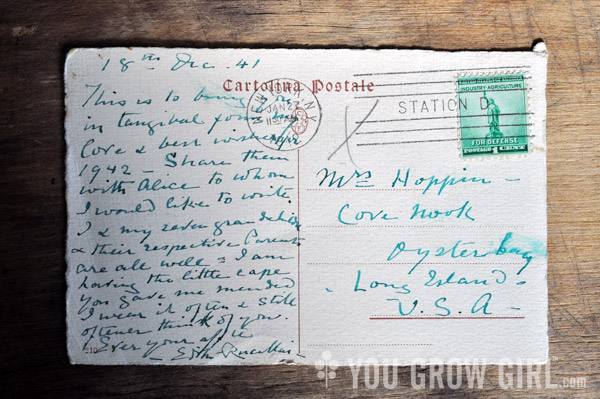 18th Dec. 41
Cartolina Postale
This is to bring
in tangibal form
Love & best wishes
1942 – Share them
with Alice to whom
I would like to write.
I & my seven grandchildren
& their respective Parents
are all well & I am
having the little cape
you gave me mended
I wear it often & still
oftener think of you.
Ever your affte
Edith
NEW YORK, N.Y.
JAN 27
1942
STATION D
INDUSTRY·AGRICULTURE
FOR DEFENSE
POSTAGE 1 CENT
Mrs Hoppin –
Cove Nook
Oyster bay
– Long Island –
U.S.A –
YOU GROW GIRL.com